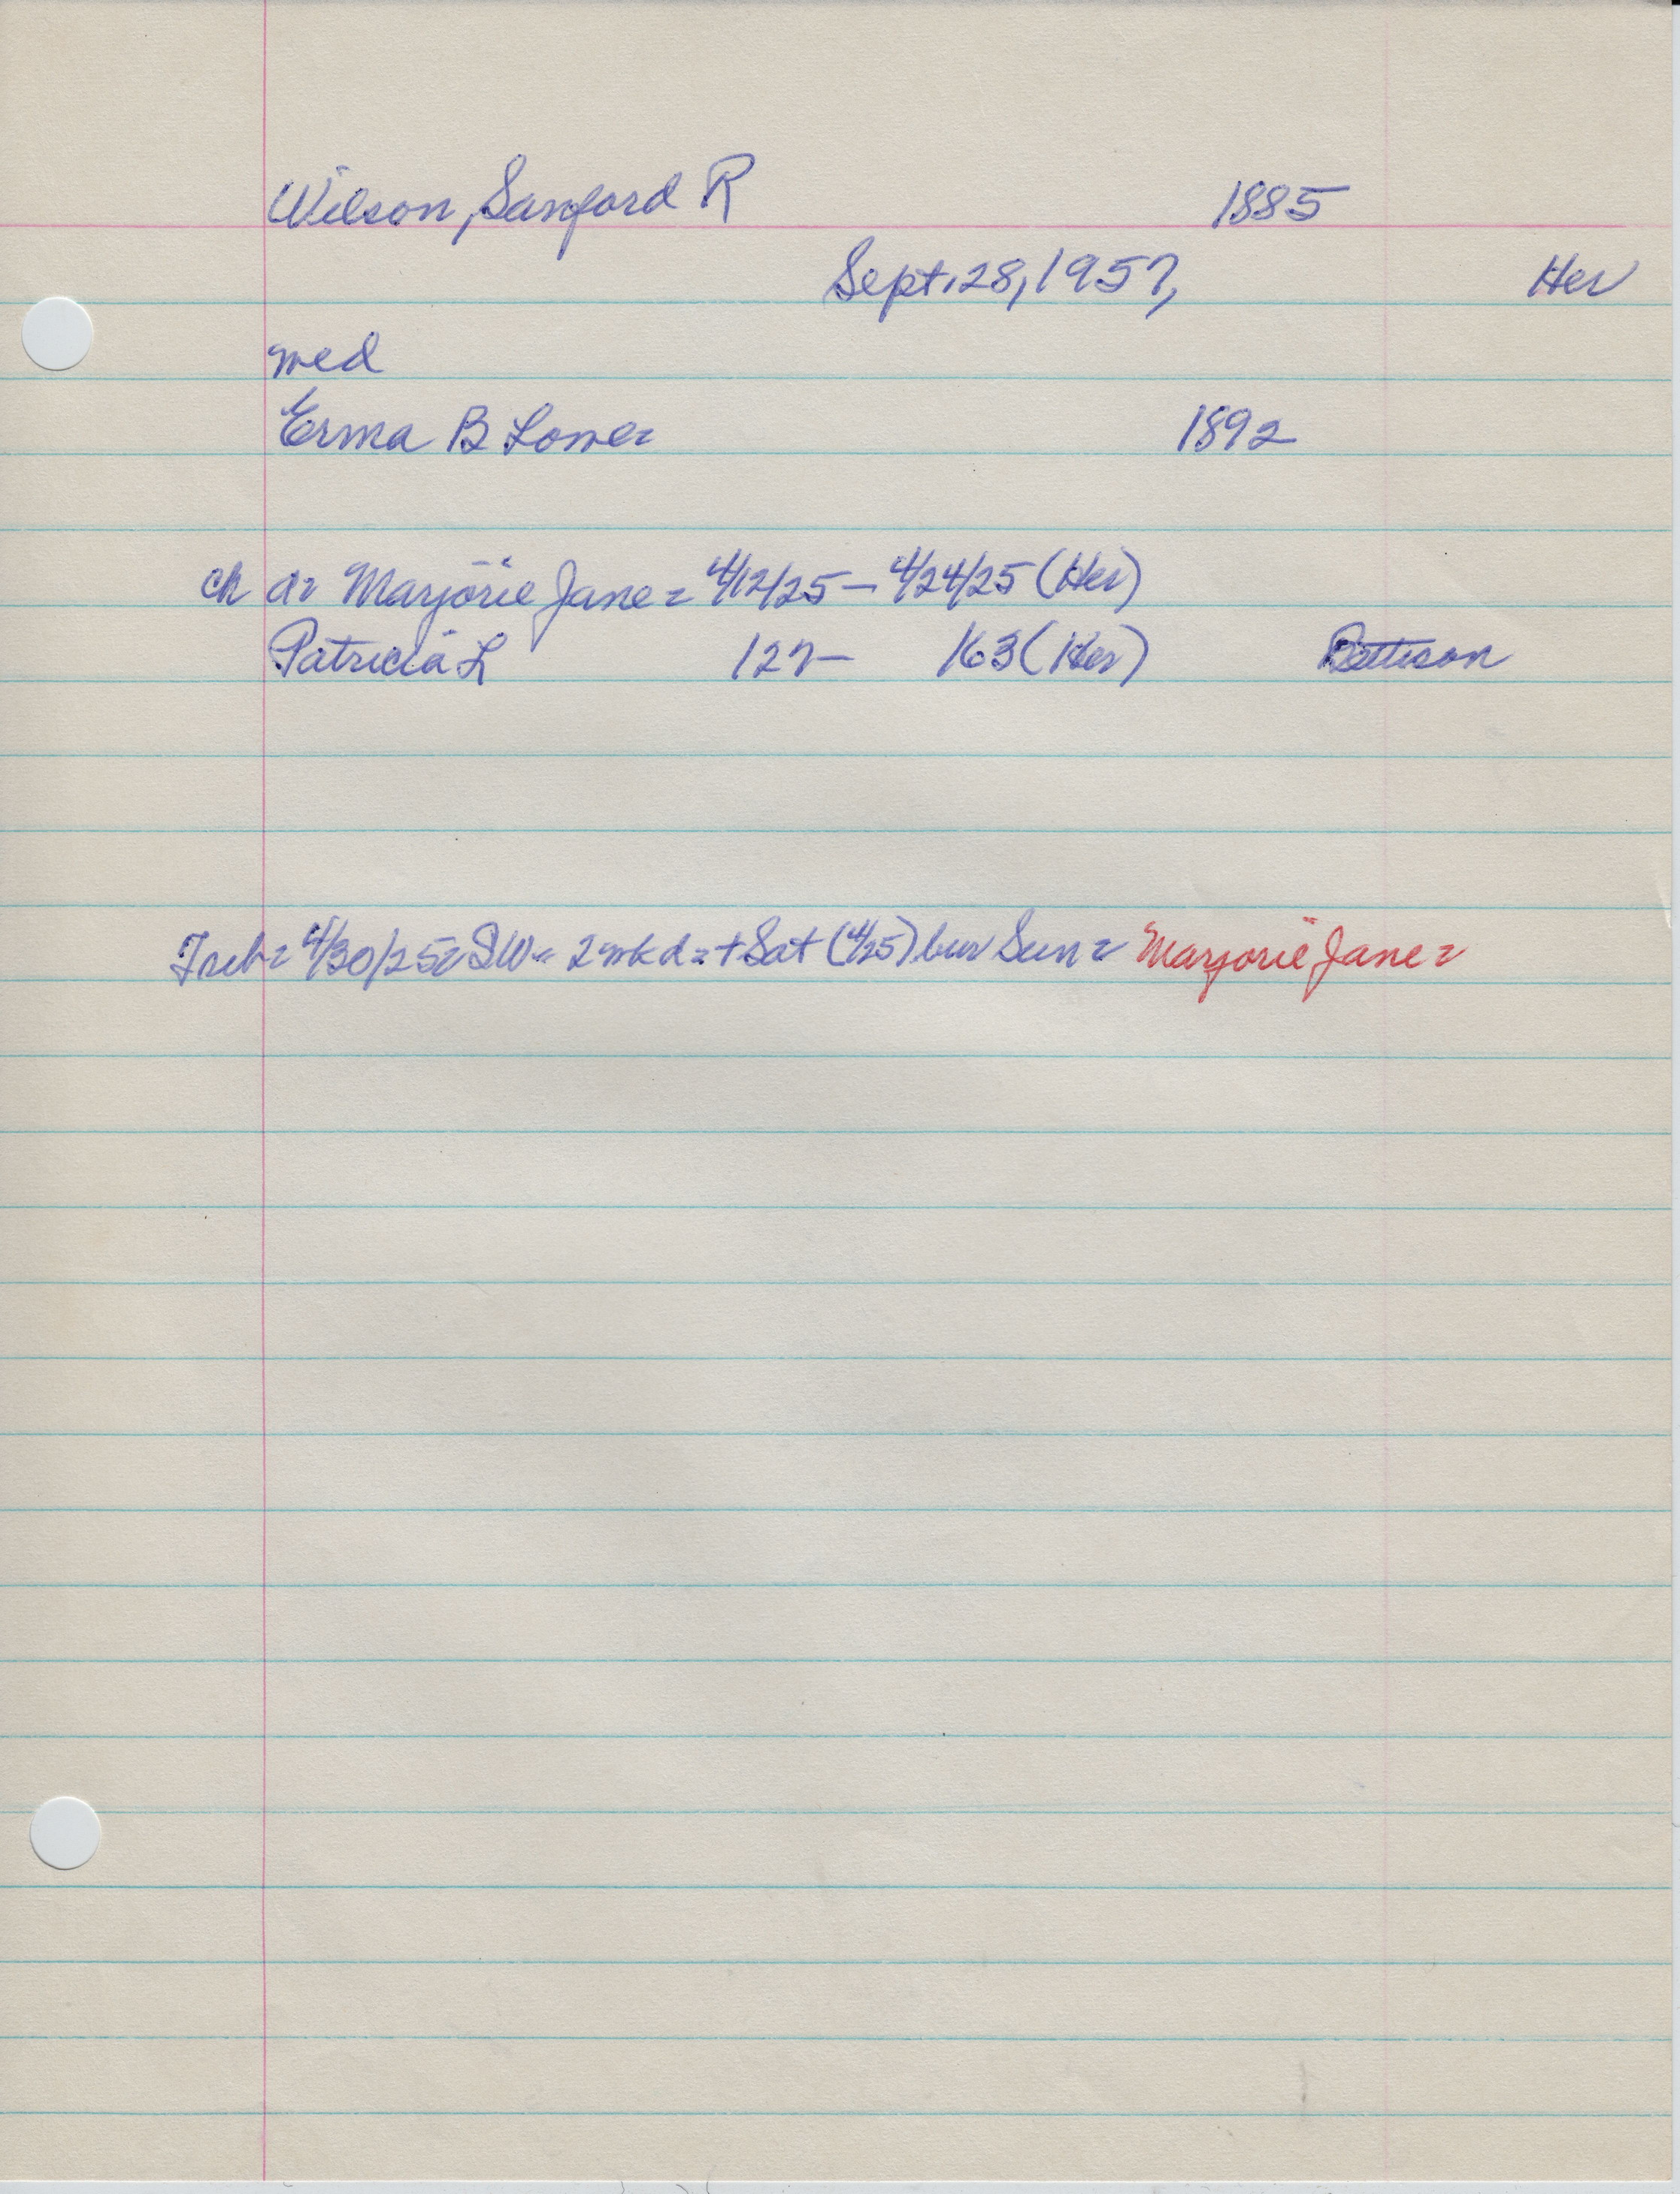 Wilson, Sanford R 1885
Sept. 28, 1957, Her
med
Erma B Lowe= 1892
ch d= Marjorie Jane= 4/12/25 – 4/24/25 (Her)
Patricia L 127– 163 (Her) Bettison
4/30/25= SW= 2 wk d= + Sat (4/25) bur Sun= Marjorie Jane=